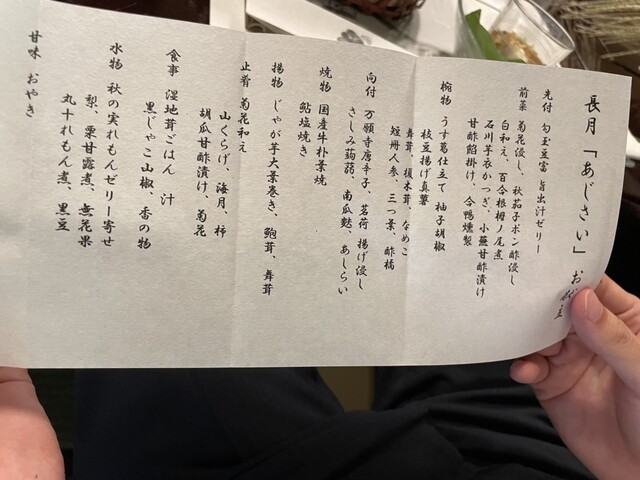 長月「あじさい」お
先付 勾玉豆富 旨出汁ゼリー
前菜 菊花浸し、秋茄子ポン酢浸し
白和え、百合根栂ノ尾煮
石川芋衣かつぎ、小蕪甘酢漬け
甘酢餡掛け、合鴨燻製
椀物 うす葛仕立て 柚子胡椒
枝豆揚げ真薯
舞茸、榎木茸、なめこ
短冊人参、三つ葉、酢橘
向付 万願寺唐辛子、茗荷 揚げ浸し
さしみ蒟蒻、南瓜麩、あしらい
焼物 国産牛朴葉焼
鮎塩焼き
揚物 じゃが芋大葉巻き、鮑茸、舞茸
止肴 菊花和え
山くらげ、海月、柿
胡瓜甘酢漬け、菊花
食事 湿地茸ごはん 汁
黒じゃこ山椒、香の物
水物 秋の実れもんゼリー寄せ
梨、栗甘露煮、無花果
丸十れもん煮、黒豆
甘味 おやき